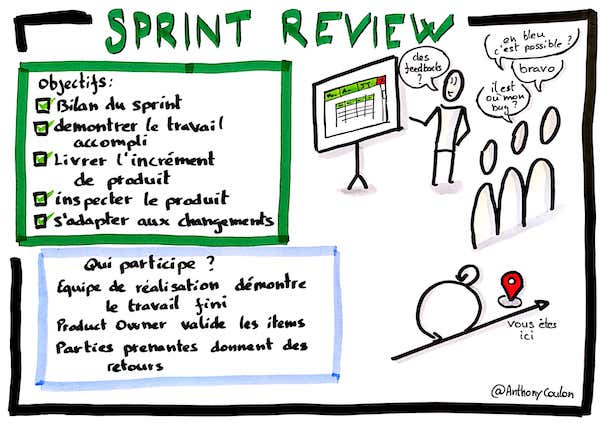 SPRINT REVIEW
Objectifs:
Bilan du sprint
démontrer le travail
accompli
Livrer l'incrément
de produit
inspecter le produit
s'adapter aux changements
des
feedbacks
?
en bleu
c'est possible ?
bravo
il est
où mon
bug ?
Qui participe ?
Equipe de réalisation démontre
le travail fini
Product Owner valide les items
Parties prenantes donnent des
retours
vous êtes
ici
@AnthonyCoulon